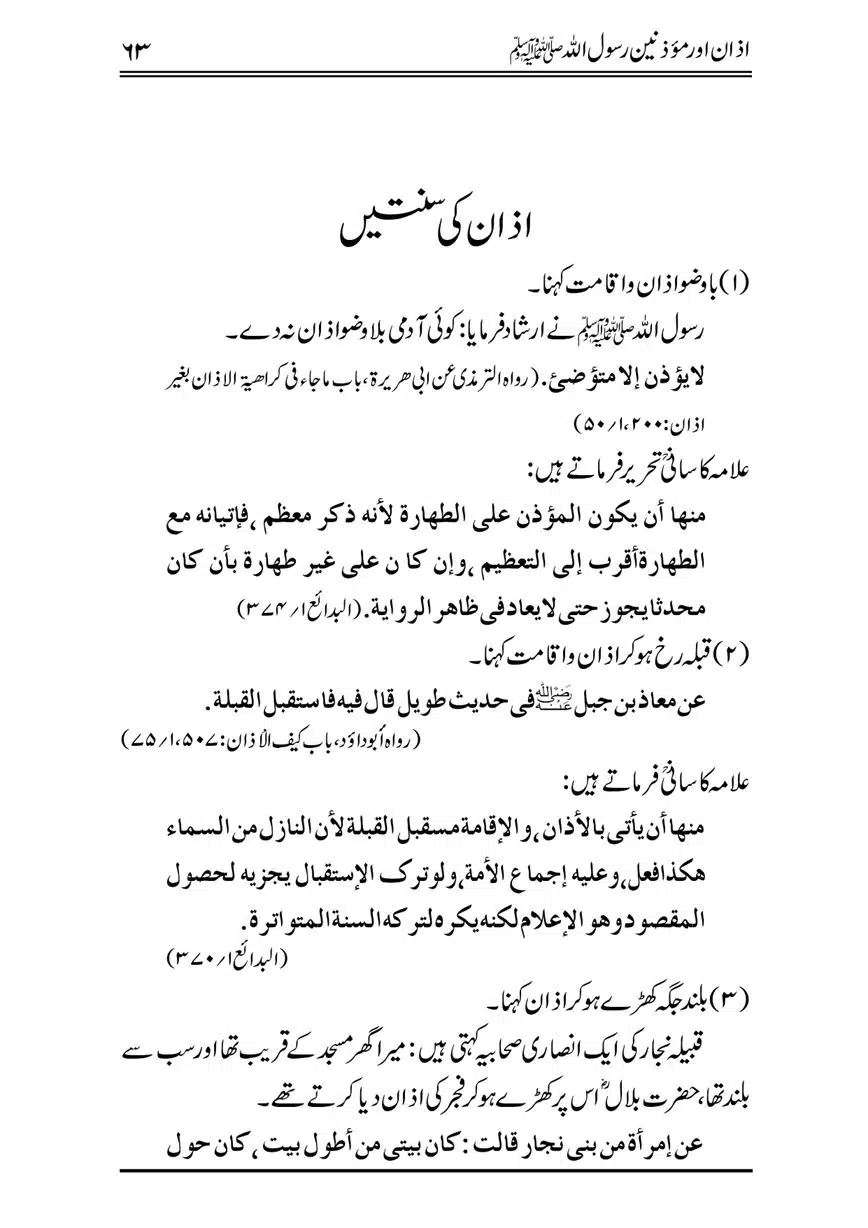 اذان اور مؤذنین رسول اللہ ﷺ ۶۳
اذان کی سنتیں
(۱) باوضو اذان واقامت کہنا۔
رسول اللہ ﷺ نے ارشاد فرمایا: کوئی آدمی بلا وضو اذان نہ دے۔
لايؤذن إلا متؤضئ. (رواہ الترمذی عن ابی ھریرة، باب ماجاء فی کراھیة الاذان بغیر
اذان: ۲۰۰، ۱؍۵۰)
علامہ کاسانیؒ تحریر فرماتے ہیں:
منها أن يكون المؤذن على الطهارة لأنه ذكر معظم ،فإتيانه مع
الطهارة أقرب إلى التعظيم ،وإن كان على غير طهارة بأن كان
محدثا يجوز حتى لايعاد فى ظاهر الرواية. (البدائع ۱؍۳۷۴)
(۲) قبلہ رخ ہوکر اذان واقامت کہنا۔
عن معاذ بن جبل رضی اللہ عنہ فى حديث طويل قال فيه فاستقبل القبلة.
(رواہ أبوداؤد، باب کیف الأذان: ۵۰۷، ۱؍۷۵)
علامہ کاسانیؒ فرماتے ہیں:
منها أن يأتى بالأذان ،والإقامة مسقبل القبلة لأن النازل من السماء
هكذا فعل،وعليه إجماع الأمة،ولوترک الإستقبال يجزيه لحصول
المقصود وهو الإعلام لكنه يكره لتركه السنة المتواترة.
(البدائع ۱؍۳۷۰)
(۳) بلند جگہ کھڑے ہوکر اذان کہنا۔
قبیلہ نجار کی ایک انصاری صحابیہ کہتی ہیں: میرا گھر مسجد کے قریب تھا اور سب سے
بلند تھا، حضرت بلالؓ اس پر کھڑے ہوکر فجر کی اذان دیا کرتے تھے۔
عن إمرأة من بنى نجار قالت :كان بيتى من أطول بيت ،كان حول